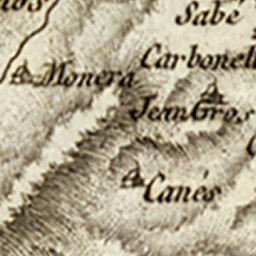 Sabé
Carbonell
Monera
Jean Gros
Canés